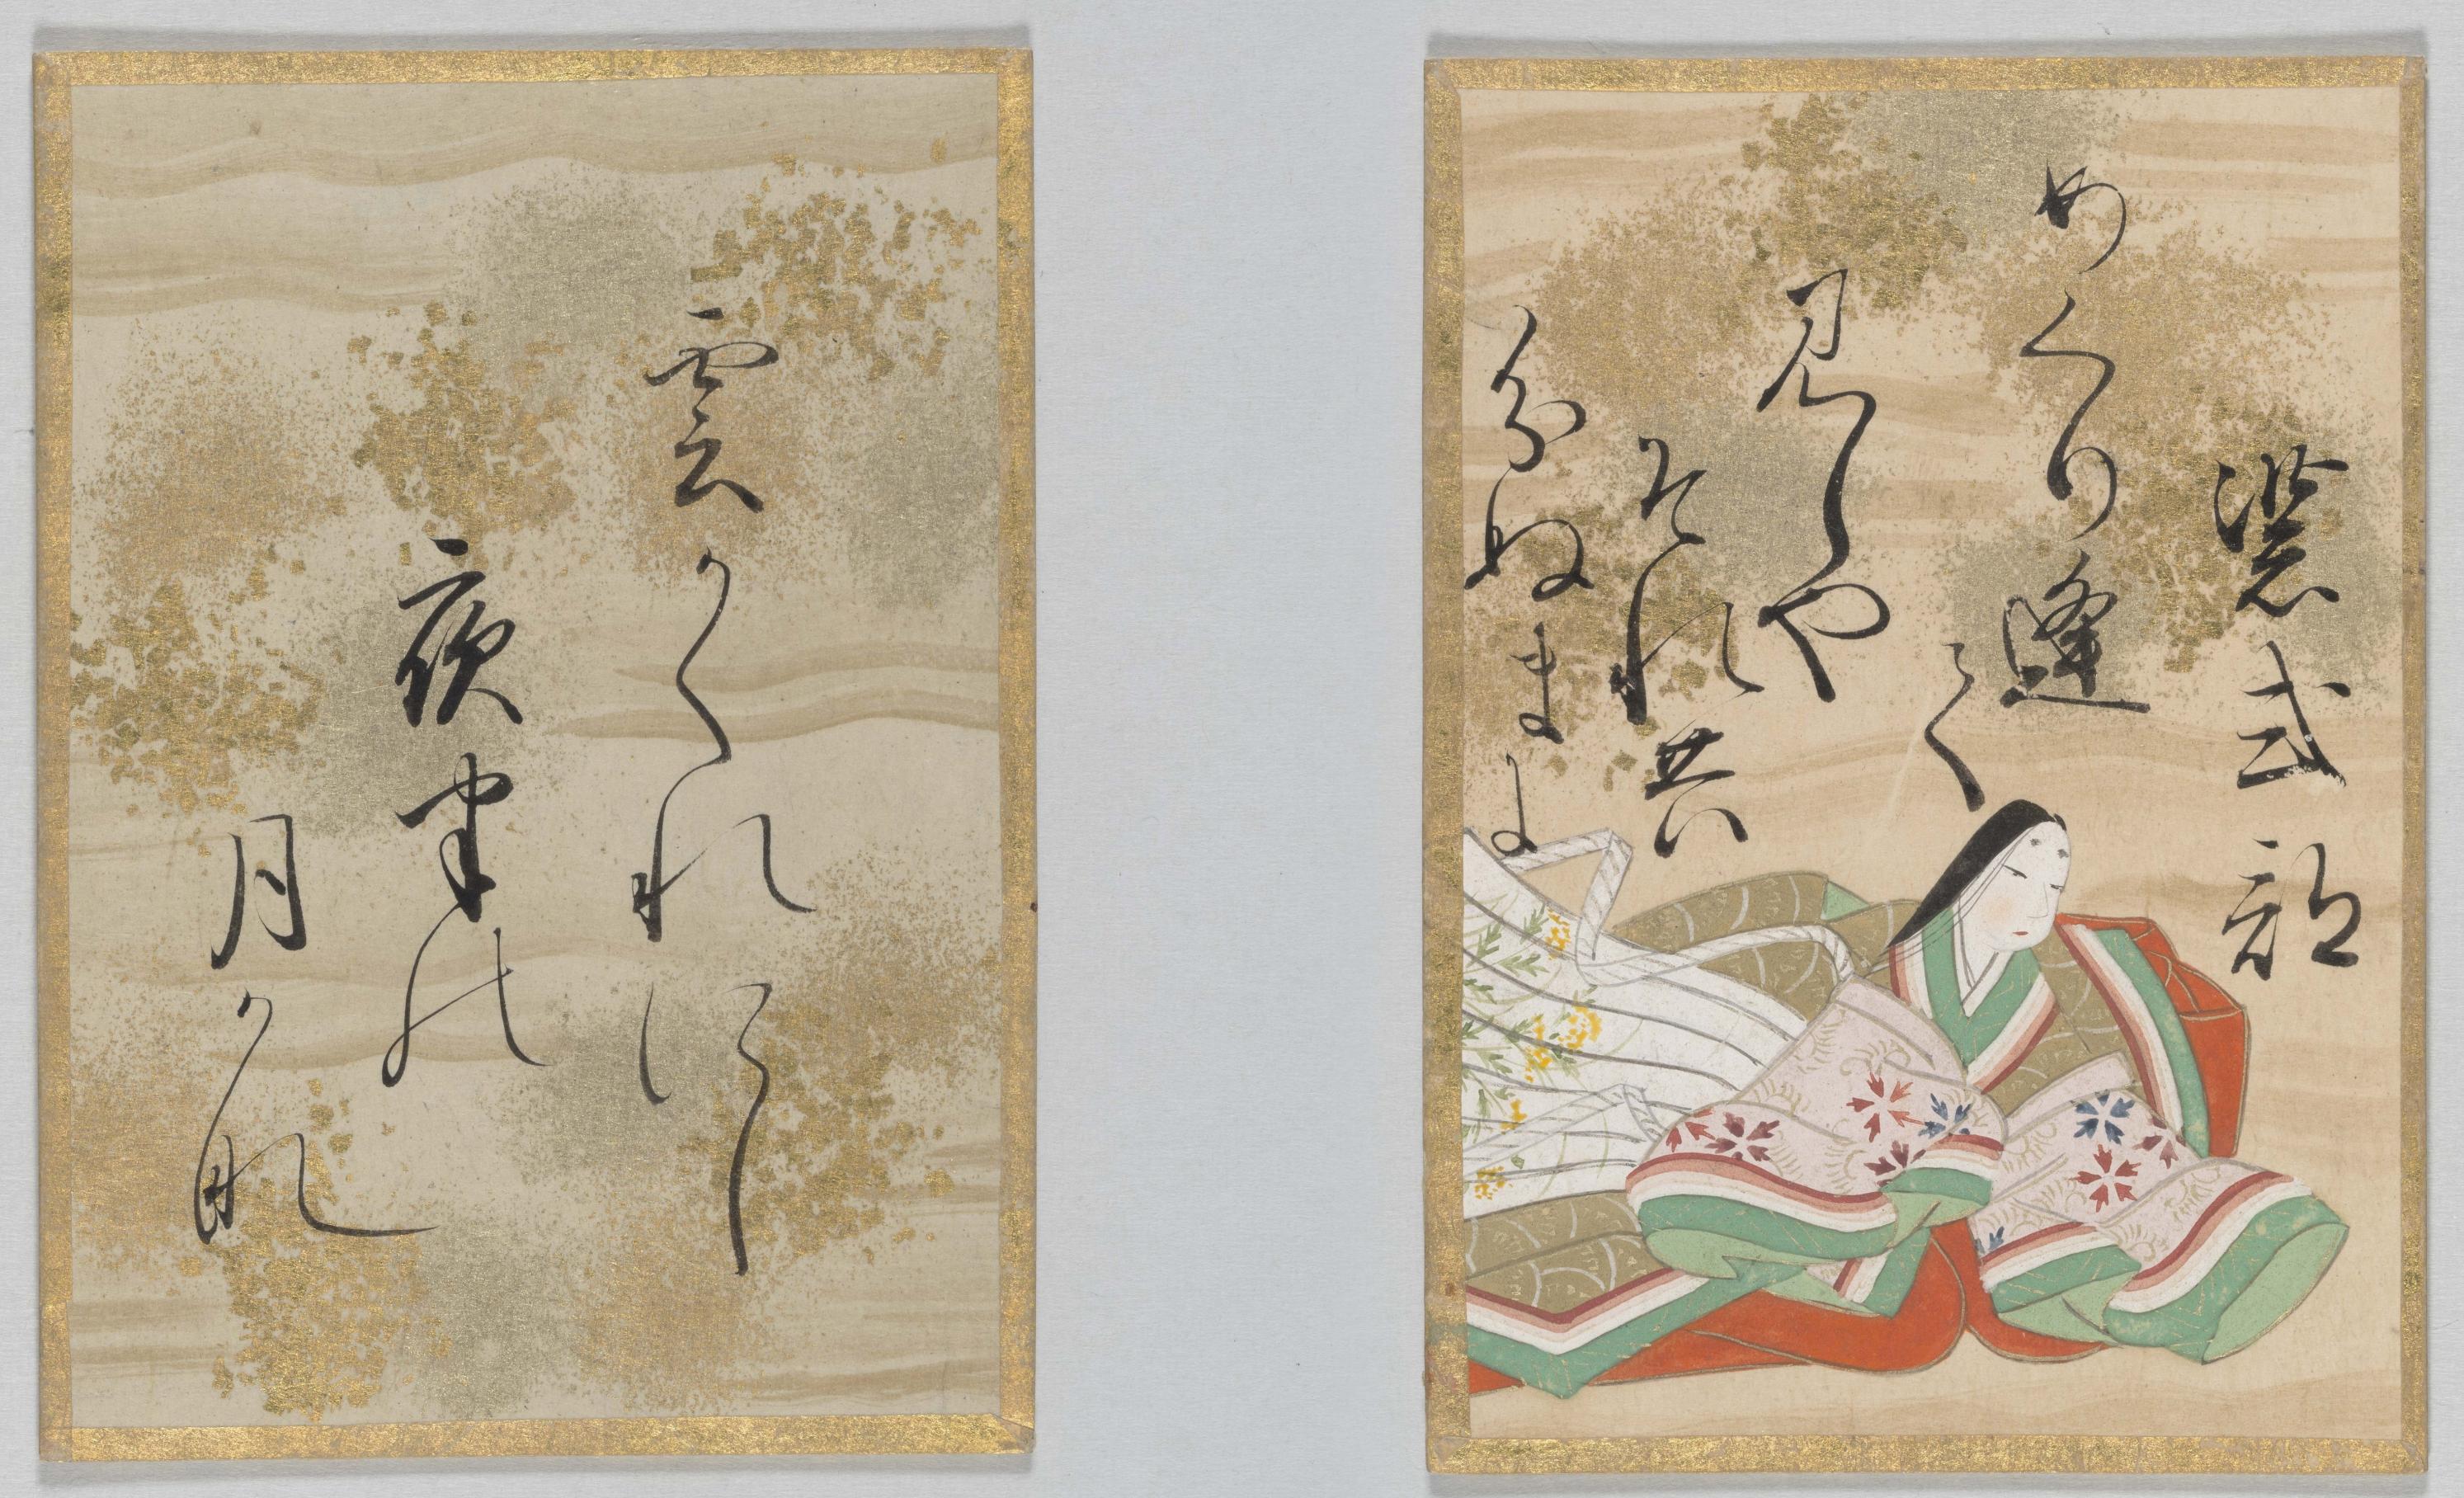 紫式部
めくり逢て
見しや
それ共
分ぬまに
雲かくれにし
夜半の
月かな